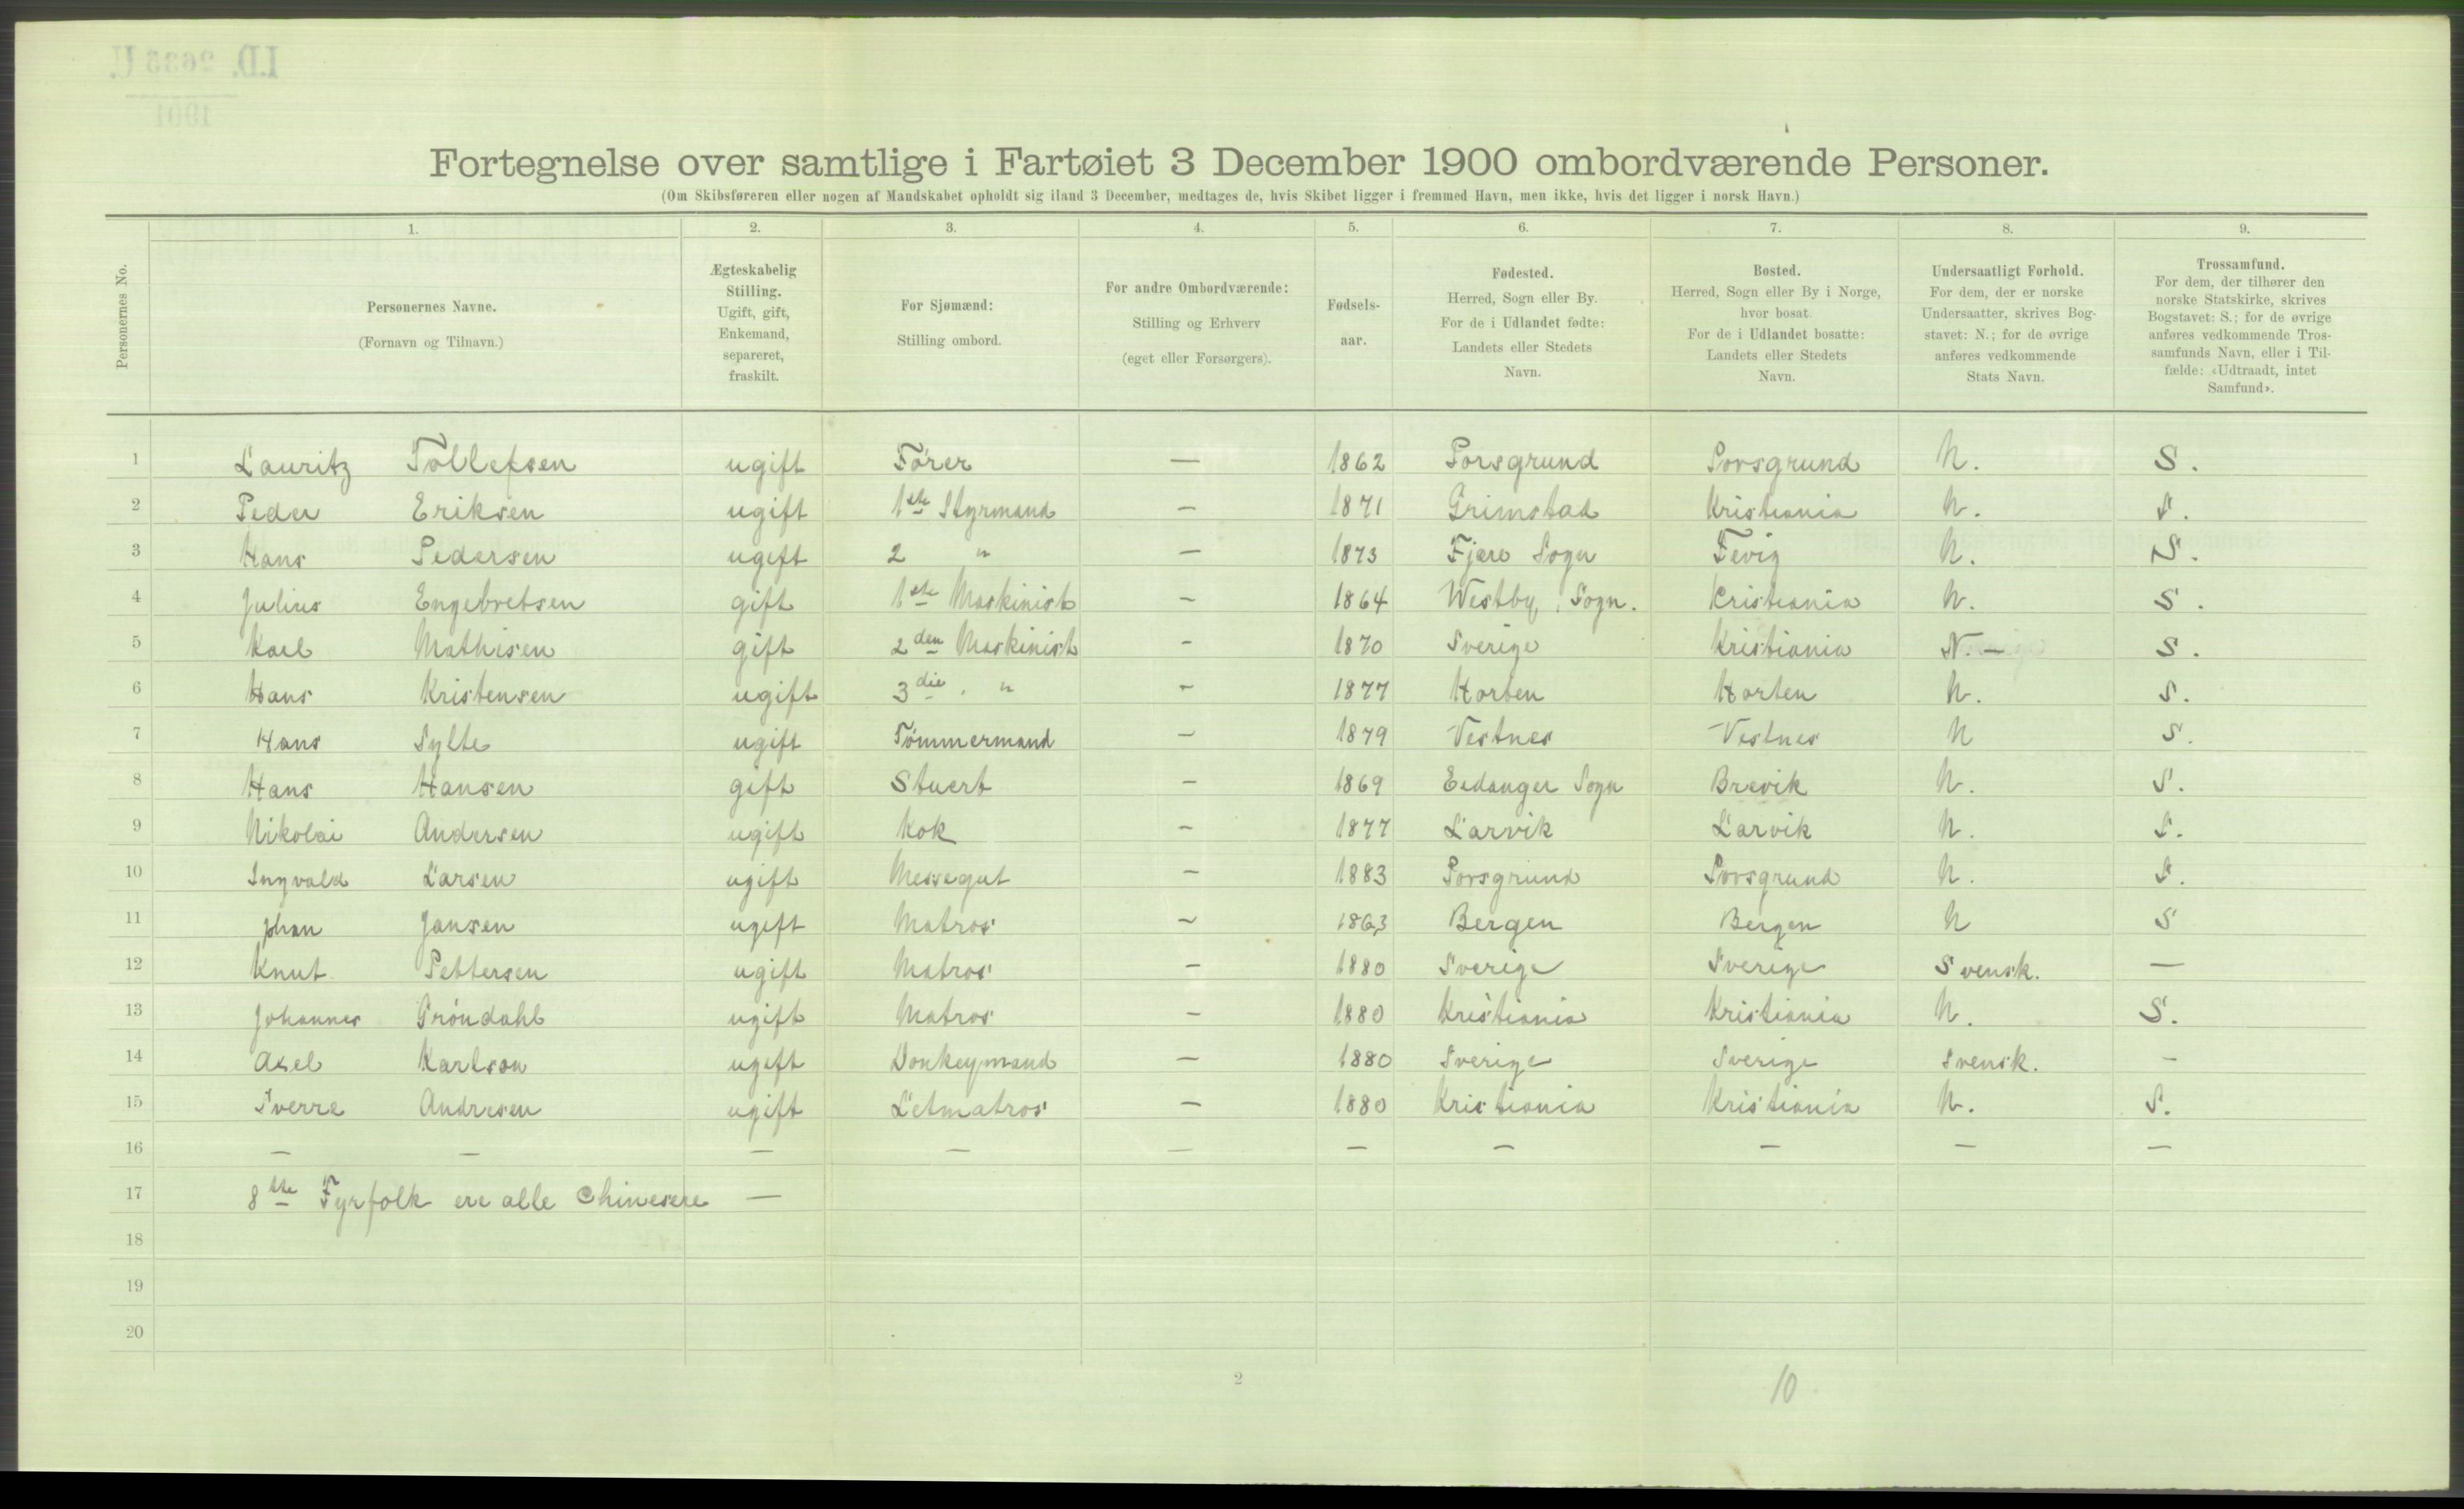 Fortegnelse over samtlige i Fartøiet 3 December 1900 ombordværende Personer.
(Om Skibsføreren eller nogen af Mandskabet opholdt sig iland 3 December, medtages de, hvis Skibet ligger i fremmed Havn, men ikke, hvis det ligger i norsk Havn.)
1. 2. 3. 4. 5. 6. 7. 8. 9.
Personernes No.
Personernes Navne.
(Fornavn og Tilnavn.)
Ægteskabelig
Stilling.
Ugift, gift,
Enkemand,
separeret,
fraskilt.
For Sjømænd:
Stilling ombord.
For andre Ombordværende:
Stilling og Erhverv
(eget eller Forsørgers).
Fødsels-
aar.
Fødested.
Herred, Sogn eller By.
For de i Udlandet fødte:
Landets eller Stedets
Navn.
Bosted.
Herred, Sogn eller By i Norge,
hvor bosat.
For de i Udlandet bosatte:
Landets eller Stedets
Navn.
Undersaatligt Forhold.
For dem, der er norske
Undersaatter, skrives Bog-
stavet: N.; for de øvrige
anføres vedkommende
Stats Navn.
Trossamfund.
For dem, der tilhører den
norske Statskirke, skrives
Bogstavet: S.; for de øvrige
anføres vedkommende Tros-
samfunds Navn, eller i Til-
fælde: «Udtraadt, intet
Samfund».
1 Lauritz Tollefsen ugift Fører — 1862 Porsgrund Porsgrund N. S.
2 Peder Eriksen ugift 1ste Styrmand — 1871 Grimstad Kristiania N. S.
3 Hans Pedersen ugift 2 " — 1873 Fjære Sogn Fevig N. S.
4 Julius Engebretsen gift 1ste Maskinist — 1864 Westby, Sogn. Kristiania N. S.
5 Karl Mathisen gift 2den Maskinist — 1870 Sverige Kristiania N. — S.
6 Hans Kristensen ugift 3die " — 1877 Horten Horten N. S.
7 Hans Sylte ugift Tømmermand — 1879 Vestnes Vestnes N S.
8 Hans Hansen gift Stuert — 1869 Eidanger Sogn Brevik N. S.
9 Nikolai Andersen ugift Kok — 1877 Larvik Larvik N. S.
10 Ingvald Larsen ugift Messegut — 1883 Porsgrund Porsgrund N. S.
11 Johan Jansen ugift Matros — 1863 Bergen Bergen N S
12 Knut Pettersen ugift Matros — 1880 Sverige Sverige Svensk. —
13 Johannes Grøndahl ugift Matros — 1880 Kristiania Kristiania N. S.
14 Axel Karlson ugift Donkeymand — 1880 Sverige Sverige Svensk. —
15 Sverre Andresen ugift Letmatros — 1880 Kristiania Kristiania N. S.
16 — — — — — — — — — —
17 8tte Fyrfolk ere alle Chinesere —
18
19
20
2
10